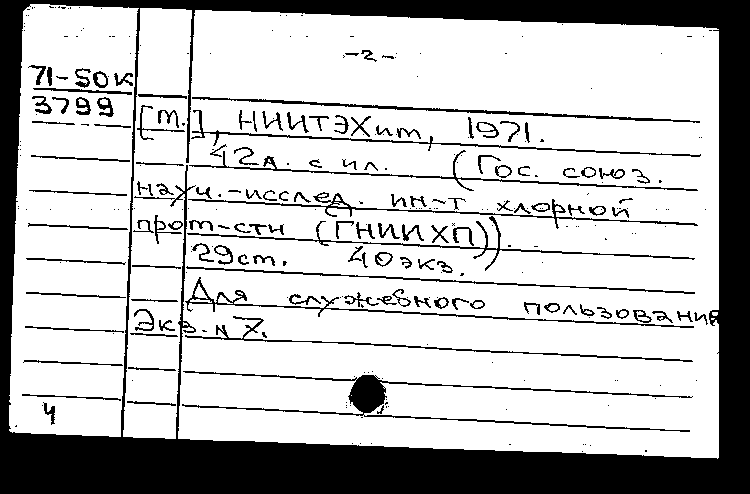 -2-
71-50к
3799
[М.], НИИТЭХим, 1971.
42л. с ил. (Гос. союз.
науч.-исслед. ин-т хлорной
пром-сти (ГНИИХП)).
29см. 40экз.
Для служебного пользования
Экз. N 7.
4